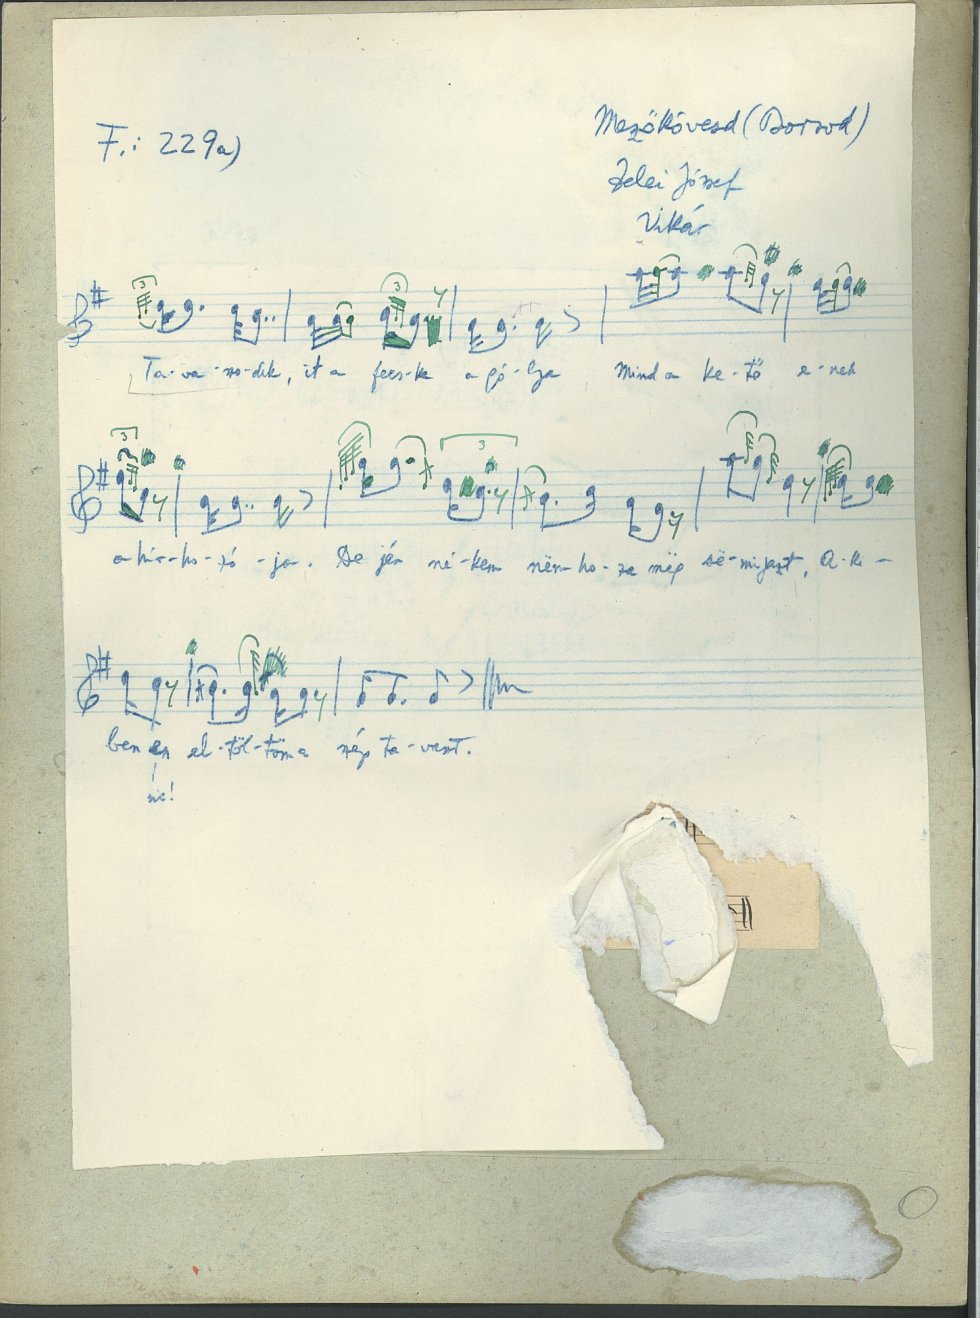 F.: 229a)
Mezőkövesd (Borsod)
Zelei József
Vikár
3 3
Ta-va-szo-dik, it a fecs-ke a gó-lya Mind a ke-tő e-nek
3 3
a hír-ho-zó-ja. De jén né-kem nëm ho-za mëg së-mijazt, A-ki-
ben én el-töl-töm a szép ta-vaszt.
sic!